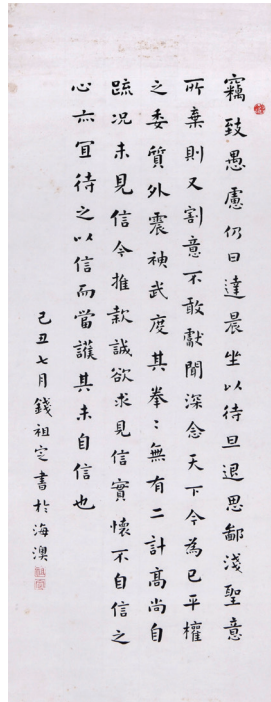 竊致愚慮仍日達晨坐以待旦退思鄙淺聖意
所棄則又割意不敢獻聞深念天下今為已平權
之委質外震神武度其拳〻無有二計高尚自
疏况未見信今推款誠欲求見信實懷不自信之
心亦宜待之以信而當護其未自信也
己丑七月錢祖定書於海澳